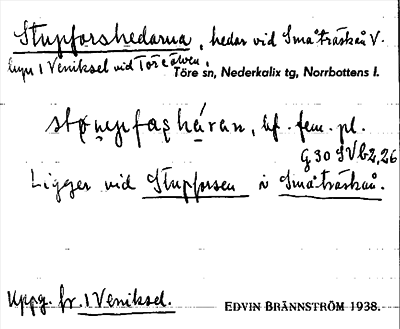 Stupforshedarna, hedar vid Småträskån V.
byn 1 Veniksel vid Töre älven.
Töre sn, Nederkalix tg, Norrbottens l.
bf. fem. pl.
G 30 SV b 2, 26
Ligger vid Stupforsen i Småträskån.
Uppg. fr. 1 Veniksel.
EDVIN BRÄNNSTRÖM 1938.